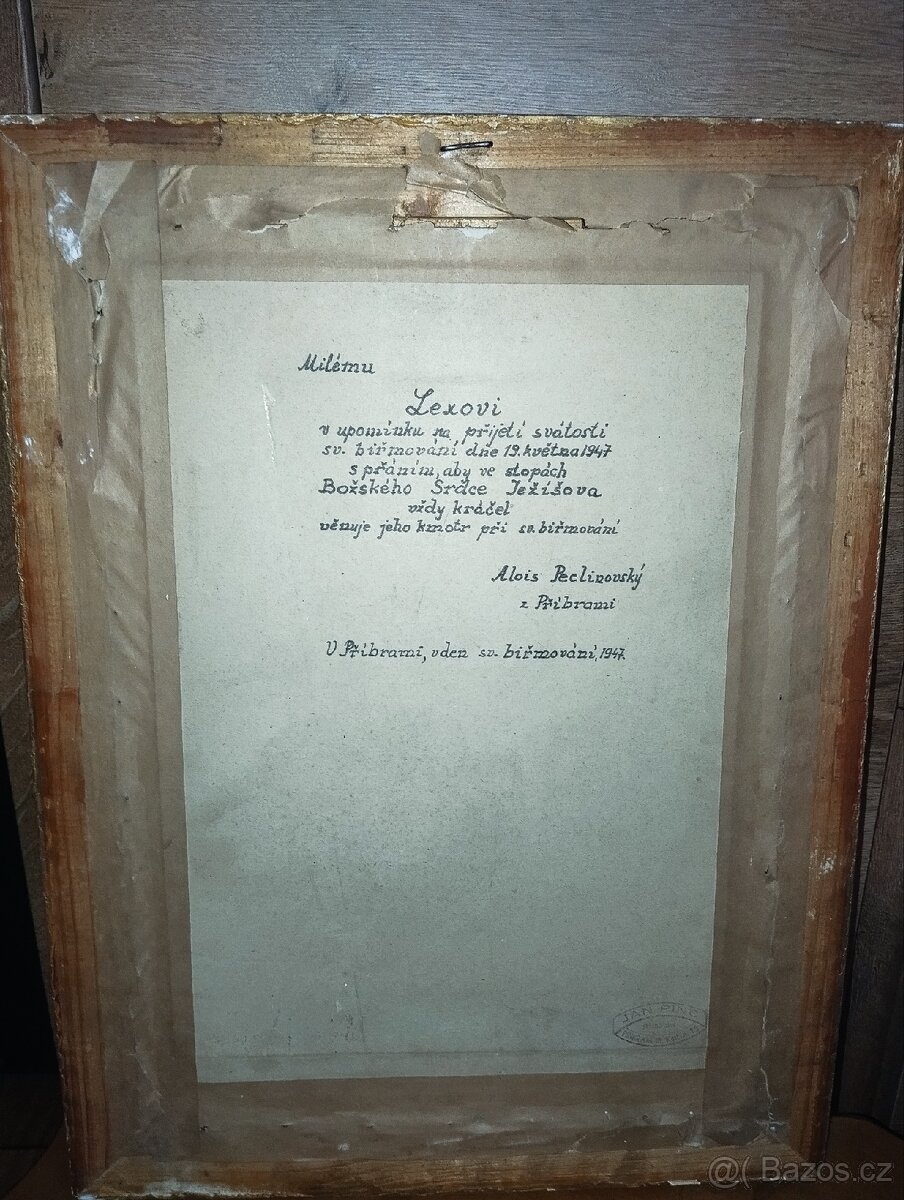 Milému
Lexovi
v upomínku na přijetí svátosti
sv. biřmování dne 19. května 1947
s přáním, aby ve stopách
Božského Srdce Ježíšova
vždy kráčel
věnuje jeho kmotr při sv. biřmování
Alois Peclinovský
z Příbrami
V Příbrami, v den sv. biřmování, 1947.
JAN
@( Bazos.cz